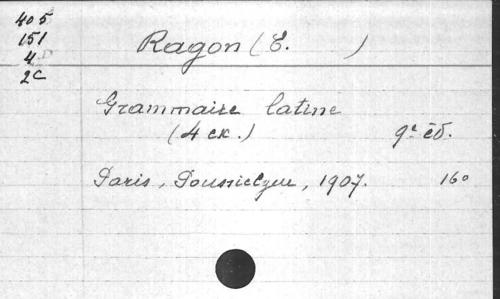 405
151
4
2C
Ragon (E. )
Grammaire latine
(4 ex.) 9e éd.
Paris, Poussielgue, 1907. 16o